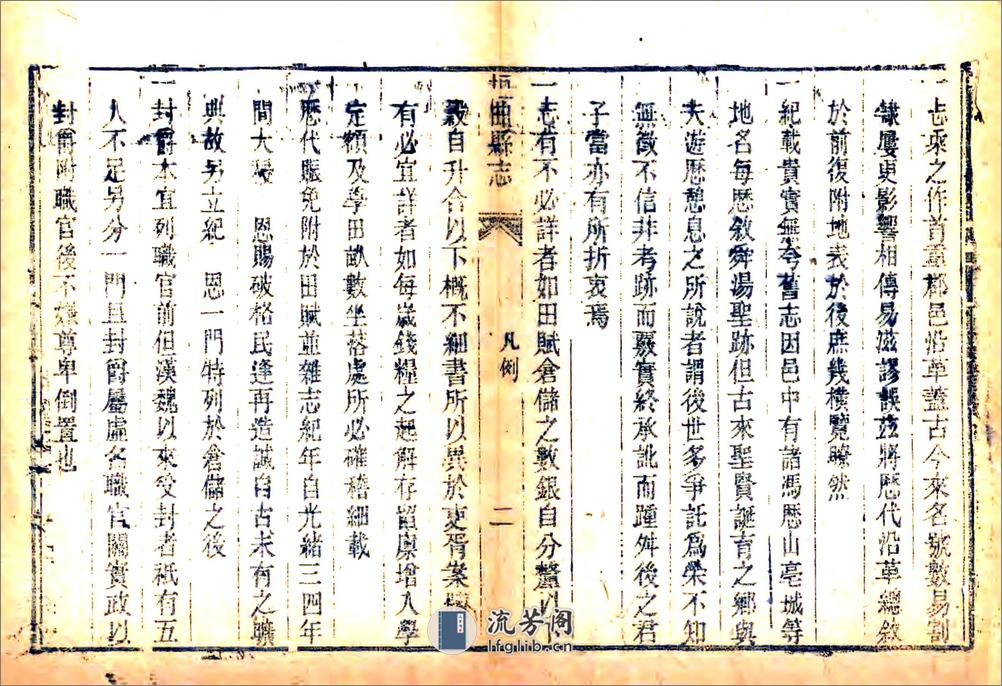 一志乘之作首重郡邑沿革蓋古今來名號數易割
隸屢更影響相傳易滋謬誤茲將歷代沿革總敘
於前復附地表於後庶幾橫覽瞭然
一紀載貴實無夸舊志因邑中有諸馮歷山亳城等
地名每歷敘舜湯聖跡但古來聖賢誕育之鄉與
夫遊歷憩息之所說者謂後世多爭託爲榮不知
無徵不信非考跡而覈實終承訛而踵舛後之君
子當亦有所折衷焉
一志有不必詳者如田賦倉儲之數銀自分釐以
垣曲縣志
凡例
二
穀自升合以下概不細書所以異於吏胥案
有必宜詳者如每歲錢糧之起解存留廩增入學
定額及學田畝數坐落處所必確稽細載
歷代賑免附於田賦並雜志紀年自光緒三四年
間大祲 恩賜破格民逢再造誠自古未有之曠
典故另立紀 恩一門特列於倉儲之後
一封爵本宜列職官前但漢魏以來受封者祇有五
人不足另分一門且封爵屬虛名職官關實政以
封爵附職官後不嫌尊卑倒置也
流芳阁
lfglib.cn